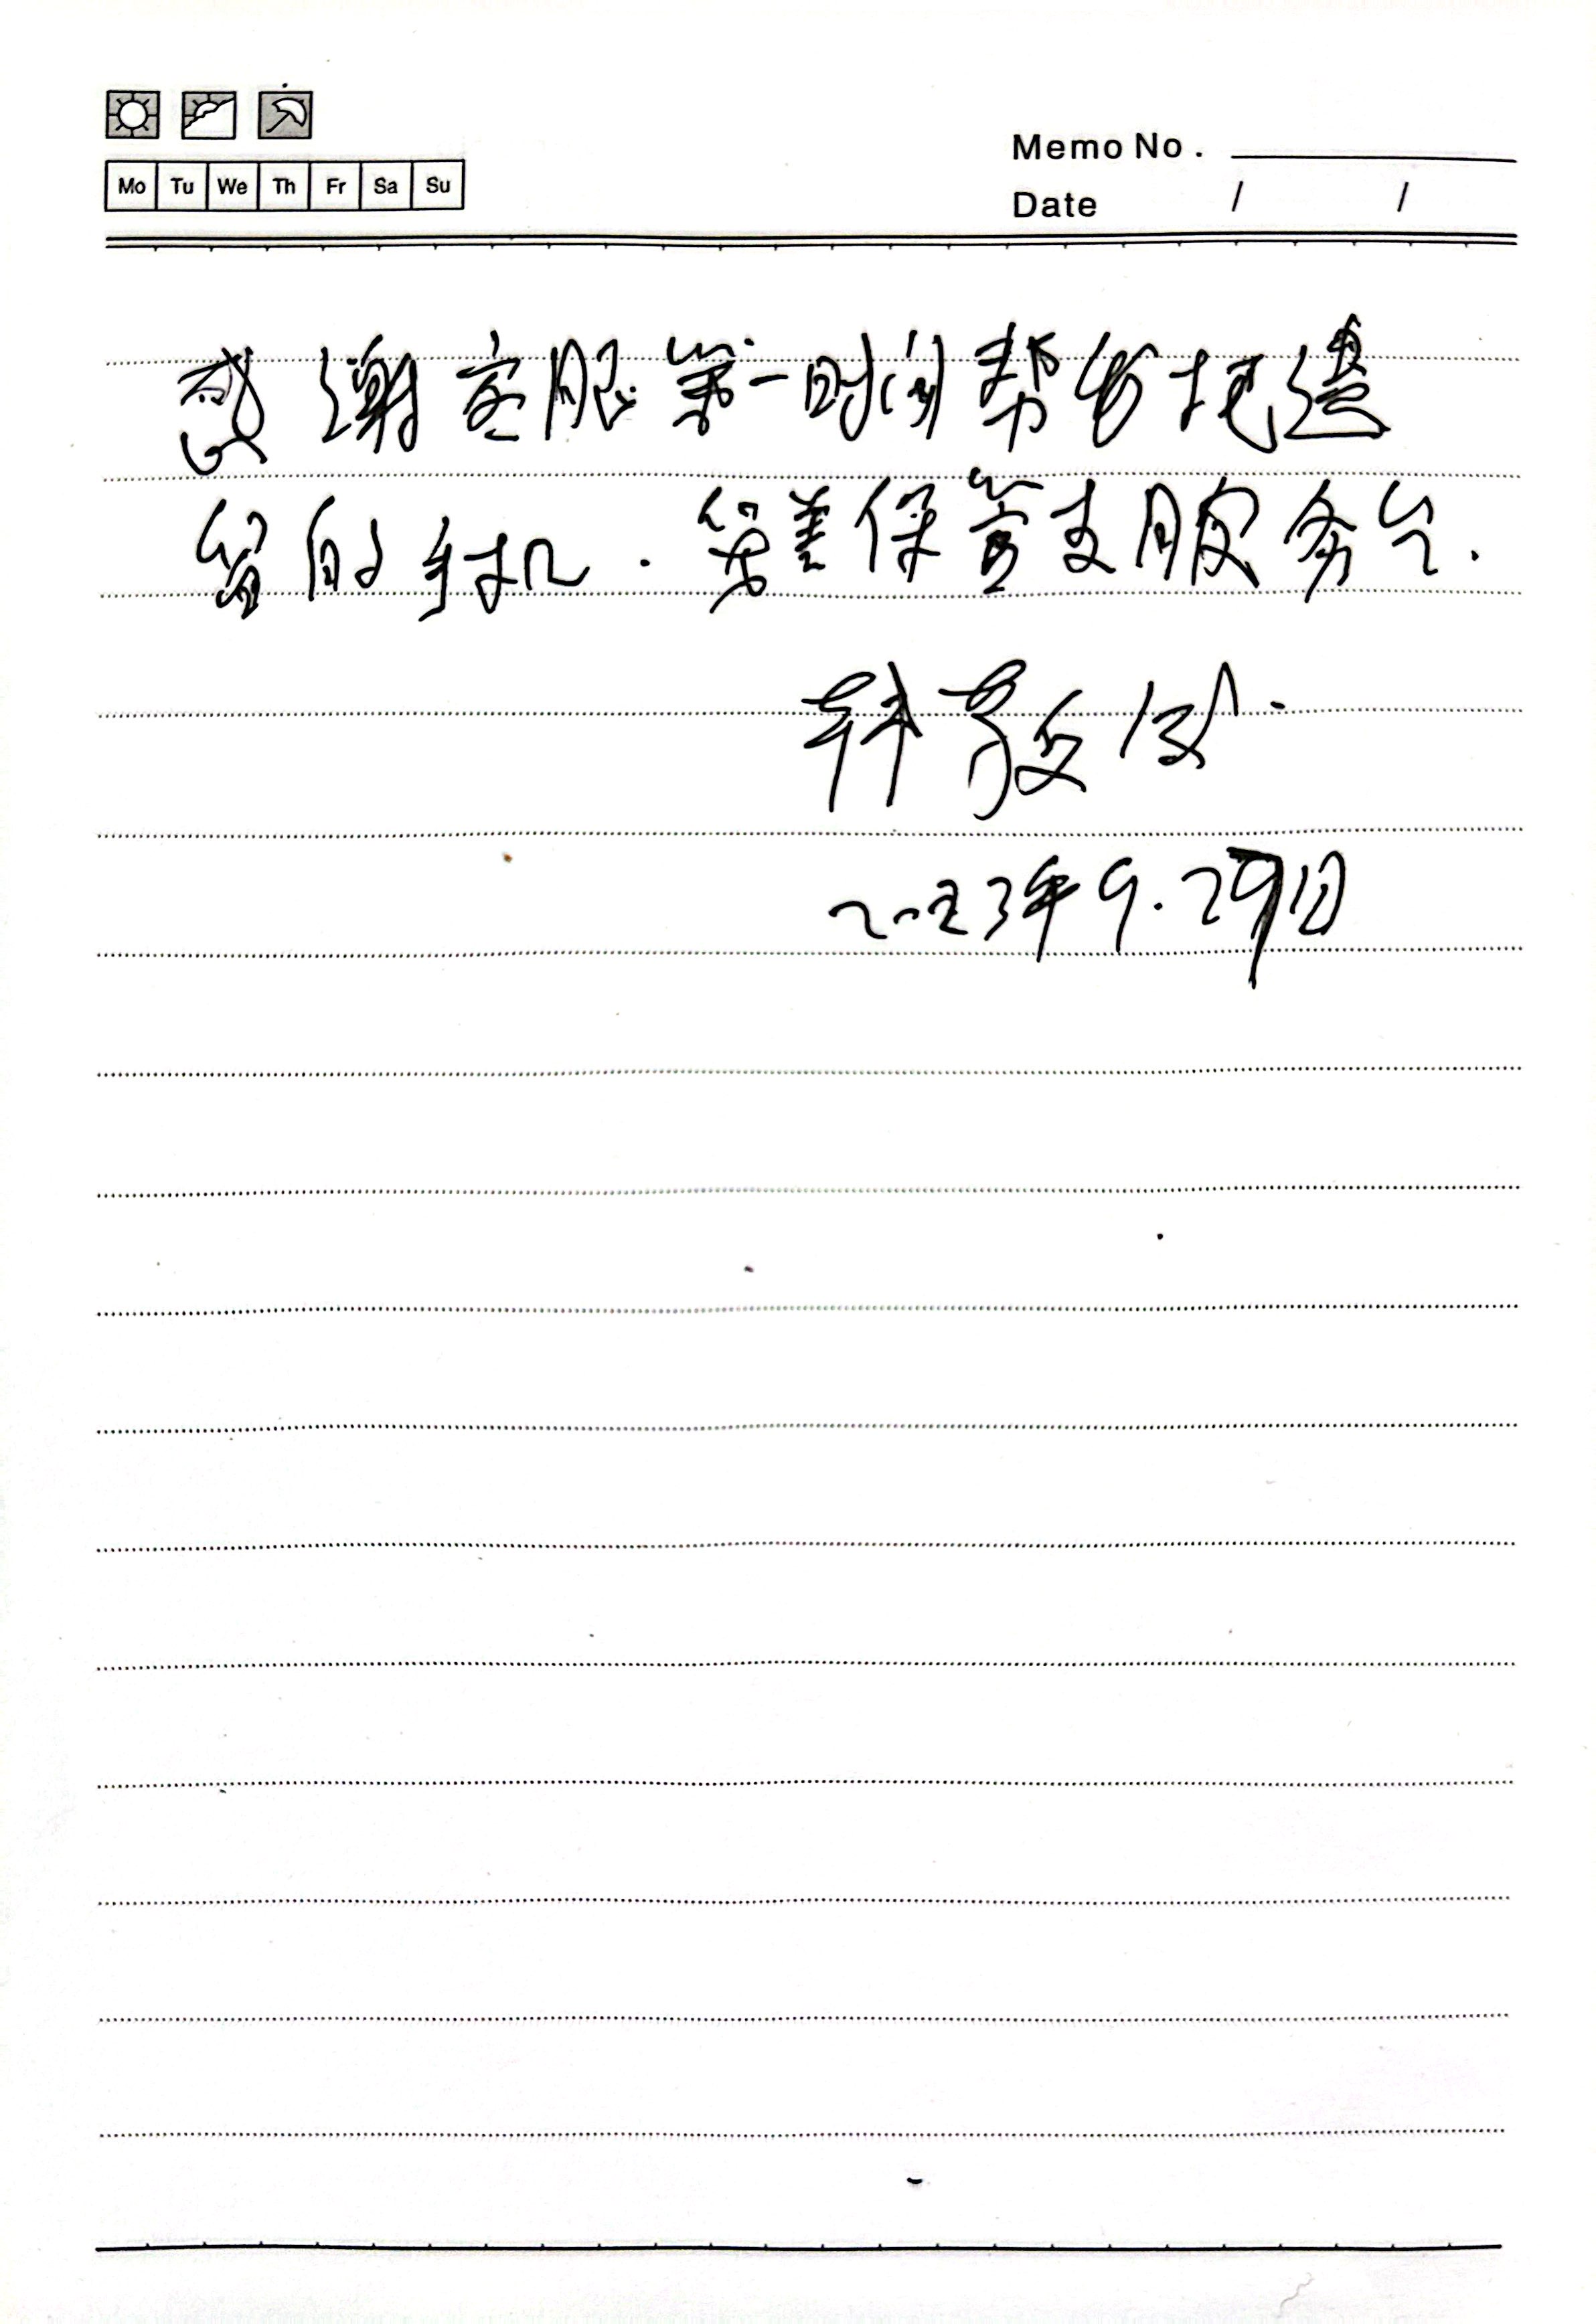 Mo Tu We Th Fr Sa Su
Memo No.
Date / /
感谢客服第一时间帮我把遗
留的手机.第差保管支服务台.
二〇二3年9.29日